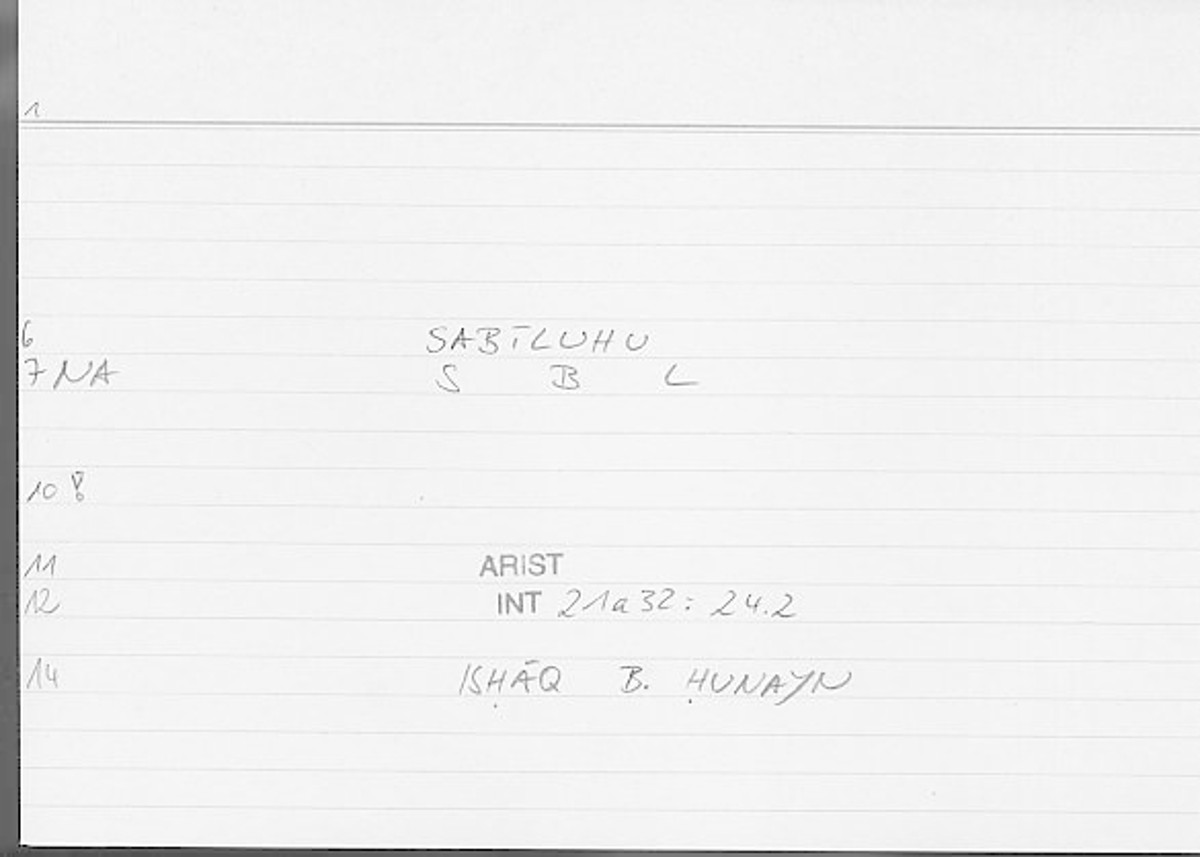 1
6 SABĪLUHU
7 NA S B L
10 !
11 ARIST
12 INT 21a32 : 24.2
14 ISḤĀQ B. ḤUNAYN